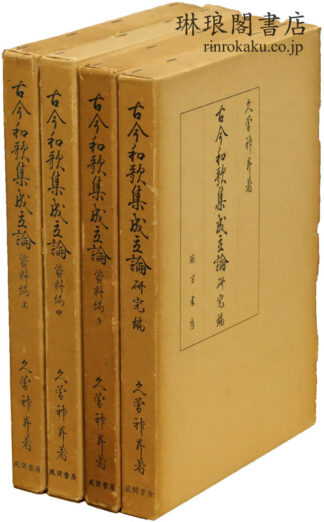 琳琅閣書店
rinrokaku.co.jp
久曽神昇著
古今和歌集成立論 研究編
風間書房
古今和歌集成立論 資料編 上
久曽神昇著
風間書房
古今和歌集成立論 資料編 中
久曽神昇著
風間書房
古今和歌集成立論 資料編 下
久曽神昇著
風間書房
古今和歌集成立論 研究編
久曽神昇著
風間書房